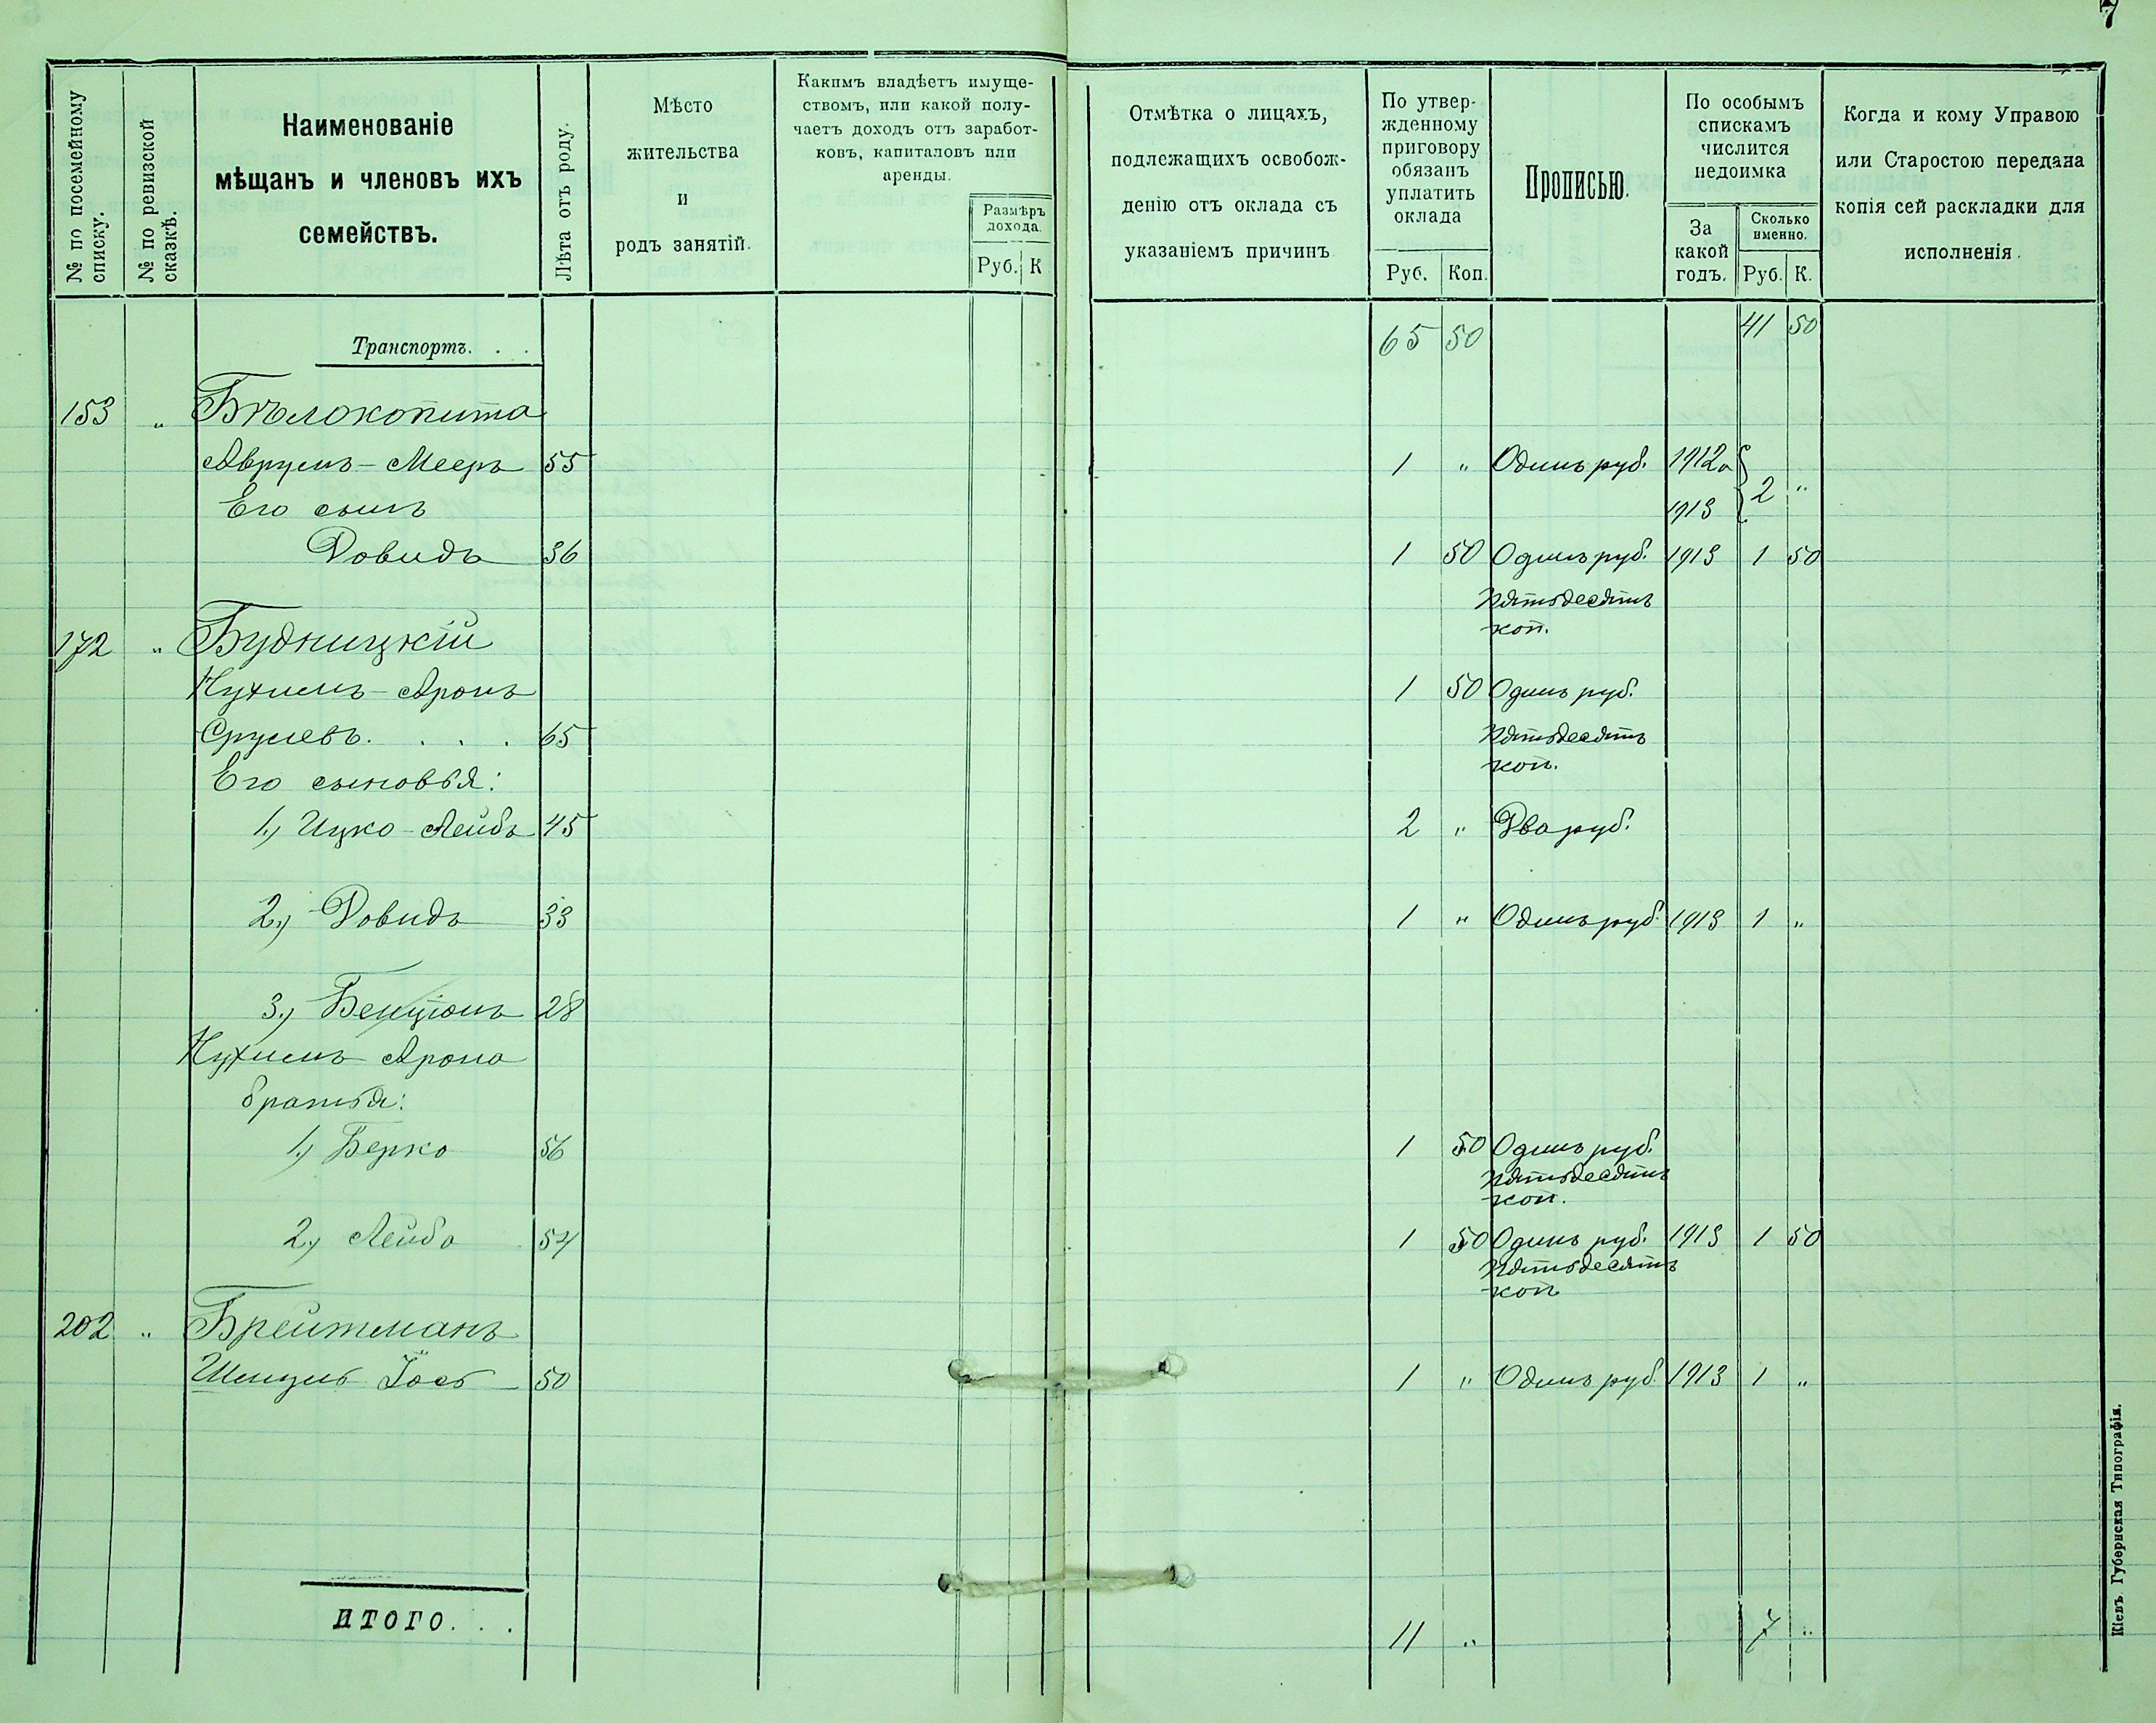 7
№ по посемейному списку.
№ по ревизской сказкѣ.
Наименованіе
мѣщанъ и членовъ ихъ
семействъ.
Лѣта отъ роду.
Мѣсто
жительства
и
родъ занятій.
Какимъ владѣетъ имуще-
ствомъ, или какой полу-
чаетъ доходъ отъ заработ-
ковъ, капиталовъ или
аренды.
Размѣръ
дохода.
Руб. К
Отмѣтка о лицахъ,
подлежащихъ освобож-
денію отъ оклада съ
указаніемъ причинъ
По утвер-
жденному
приговору
обязанъ
уплатить
оклада
Руб. Коп.
Прописью.
По особымъ
спискамъ
числится
недоимка
За
какой
годъ.
Сколько
именно.
Руб. К.
Когда и кому Управою
или Старостою передана
копія сей раскладки для
исполненія.
Транспортъ. . . 65 50 41 50
153 " Бѣлокопита
Аврумъ-Мееръ 55 1 " Одинъ руб. 1912 2 "
Его сынъ 1913
Довидъ 36 1 50 Одинъ руб. 1913 1 50
пятьдесятъ
коп.
172 " Будницкій
Нухимъ-Аронъ 1 50 Одинъ руб.
Срулевъ. . . . 65 пятьдесятъ
коп.
Его сыновья:
1,) Ицко-Лейбъ 45 2 " Два руб.
2,) Довидъ 33 1 " Одинъ руб. 1913 1 "
3,) Бенціонъ 28
Нухимъ Арона
братья:
1,) Берко 56 1 50 Одинъ руб.
пятьдесятъ
коп.
2,) Лейба 54 1 50 Одинъ руб. 1913 1 50
пятьдесятъ
коп
202 " Брейтманъ
Іось 50 1 " Одинъ руб. 1913 1 "
ИТОГО. . . 11 " 7 "
Кіевъ. Губернская Типографія.